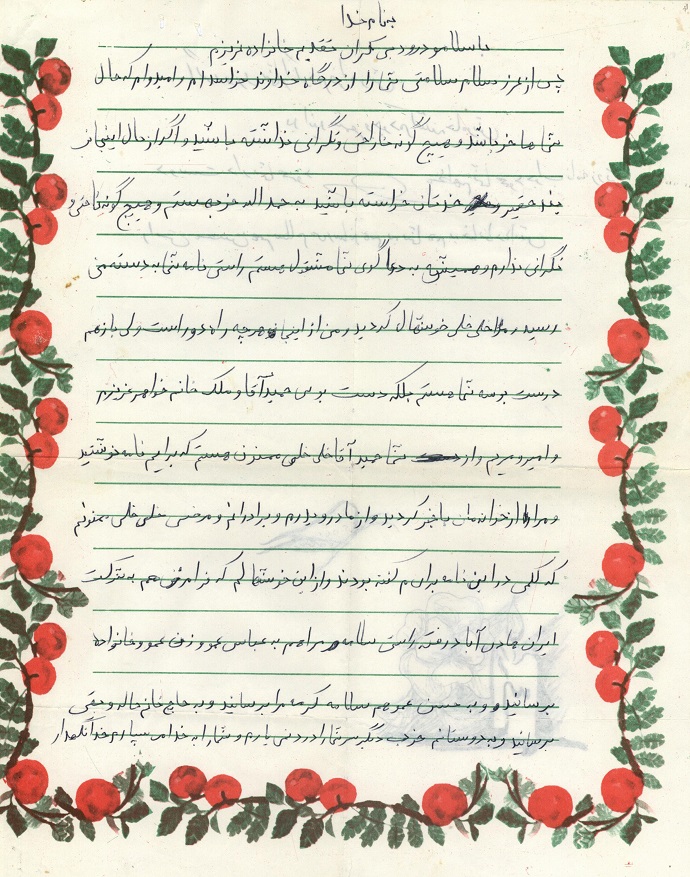 بنام خدا
با سلام و درود بی کران خدمت خانواده عزیزم
پس از عرز سلام سلامتی شما را از درگاه خداوند خواستارم و امیدوارم که حال
شما ها خوب باشد و هیچ گونه ناراحتی و نگرانی نداشته باشید و اگر از حال اینجانب
بنده حقیر خدتان خواسته باشید به حمد اله خوب هستم و هیچ گونه ناراحتی و
نگرانی ندارم و همیشه به دعا گوی شما مشغول هستم راستی نامه شما به دسته منی
رسید و مرا خلی خلی خوشحال کردید و من از اینجا هرچه راه دور است ولی بازهم
درست بوسه شما هستم بلکه دست بوس حمید آقا و ملک خانم خواهر عزیزم
و امیر و مریم و از شما حمید آقا خلی خلی ممنون هستم که برایم نامه نوشتید
و مرا از خوانه مان با خبر کردید و از مادر و پدرم و برادرانم و مرخسی خلی خلی ممنونم
که کلی در این نامه برای م گفته بودند و از این خوشحالم که هم به شرکت
ایران رفته راستی سلامه مرا هم به عباس عمو و زن عمو و خانواده
برسانید و به حسن عمو هم سلامه گرمه مرا برسانید و به حاج خانم خاله و
برسانید و به دوستانم خوب دیگر سر شما را درد نمی یارم و شما را به خدا می سپارم خدا نگهدار